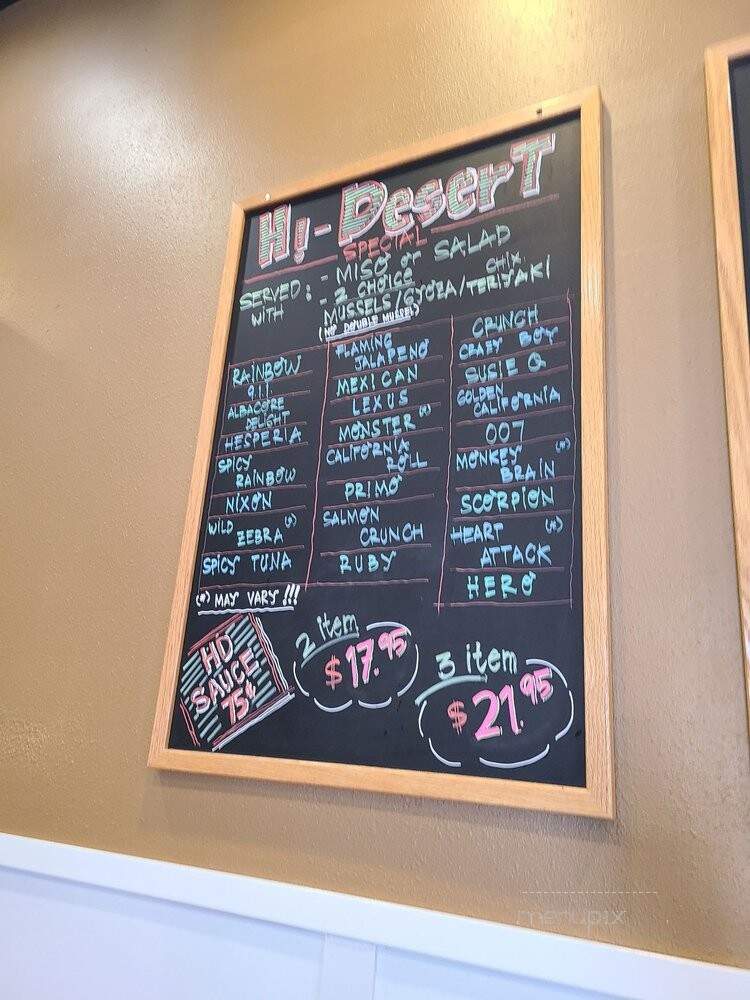 Hi-Desert
SPECIAL
SERVED WITH : - MISO or SALAD
- 2 CHOICE
CHIX.
MUSSELS/GYOZA/TERIYAKI
(NO DOUBLE MUSSEL)
RAINBOW
911
ALBACORE
DELIGHT
HESPERIA
SPICY
RAINBOW
NIXON
WILD
ZEBRA (*)
SPICY TUNA
FLAMING
JALAPENO
MEXICAN
LEXUS
MONSTER (*)
CALIFORNIA
ROLL
PRIMO
SALMON
CRUNCH
RUBY
CRUNCH
CRAZY BOY
SUSIE Q
GOLDEN
CALIFORNIA
007
MONKEY (*)
BRAIN
SCORPION
HEART (*)
ATTACK
HERO
(*) MAY VARY !!!
HD
SAUCE
75¢
2 item
$17.95
3 item
$21.95
menupix